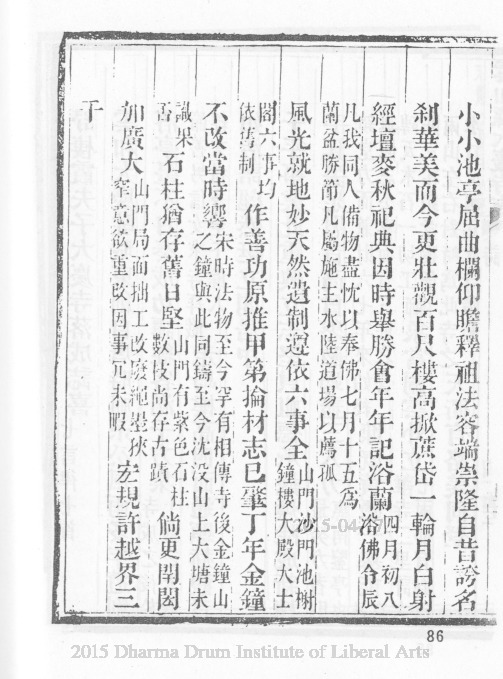 小小池亭屈曲欄仰瞻釋祖法容端崇隆自昔誇名
刹華美而今更壯觀百尺樓高掀蔗岱一輪月白射
經壇麥秋祀典因時舉勝會年年記浴蘭四月初八浴佛令辰
凡我同人備物盡忱以奉佛七月十五為蘭盆勝節凡屬施主水陸道場以薦孤
風光就地妙天然遺制遵依六事全山門沙門池榭鐘樓大殿大士
閣六事均依舊制作善功原推甲第掄材志已肇丁年金鐘
不改當時響宋時法物至今罕有相傳寺後金鐘山之鐘與此同鑄至今沈没山上大塘未
識果否石柱猶存舊日堅山門有紫色石柱數枝尚存古蹟倘更閈閎
加廣大山門局面拙工改廢繩墨狹窄意欲重改因事冗未暇宏規許越界三
千
86
2015 Dharma Drum Institute of Liberal Arts